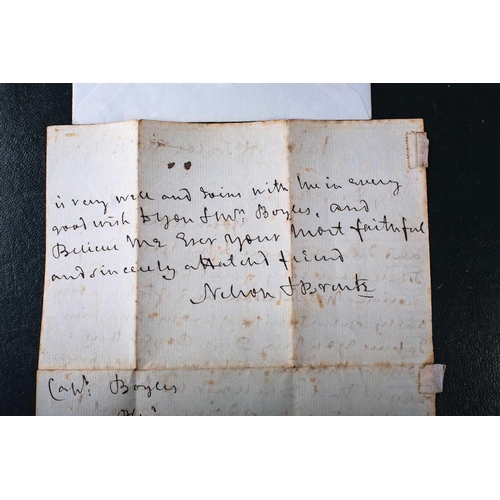 is very well and Joins with me in every
good wish to you & Mrs. Boyles, and
Believe Me Ever Your Most faithful
and sincerely attatchd friend
Nelson & Bronte
Capt. Boyles